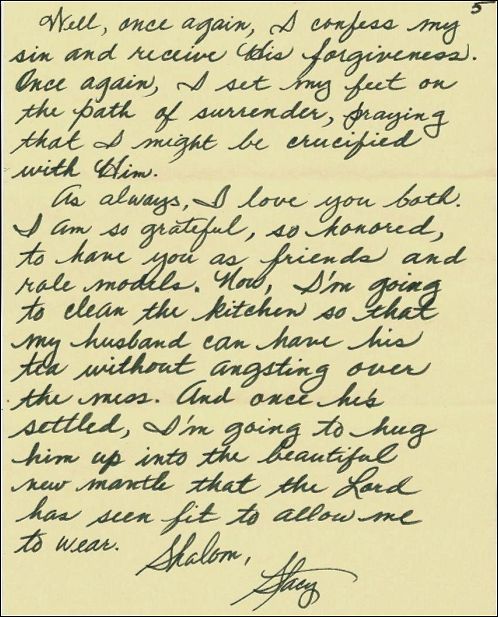 5
Well, once again, I confess my
sin and receive His forgiveness.
Once again, I set my feet on
the path of surrender, praying
that I might be crucified
with Him.
As always, I love you both.
I am so grateful, so honored,
to have you as friends and
role models. Now, I'm going
to clean the kitchen so that
my husband can have his
tea without angsting over
the mess. And once he's
settled, I'm going to hug
him up into the beautiful
new mantle that the Lord
has seen fit to allow me
to wear.
Shalom,
Stacy